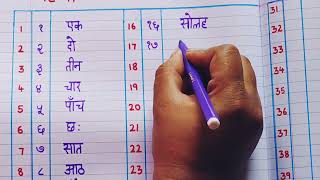 1 १ एक 16 १६ सोलह 31
2 २ दो 17 १७ 32
3 ३ तीन 18 33
4 ४ चार 19
5 ५ पाँच 20
6 ६ छः 21 36
7 ७ सात 22 37
8 ८ आठ 23 38
39